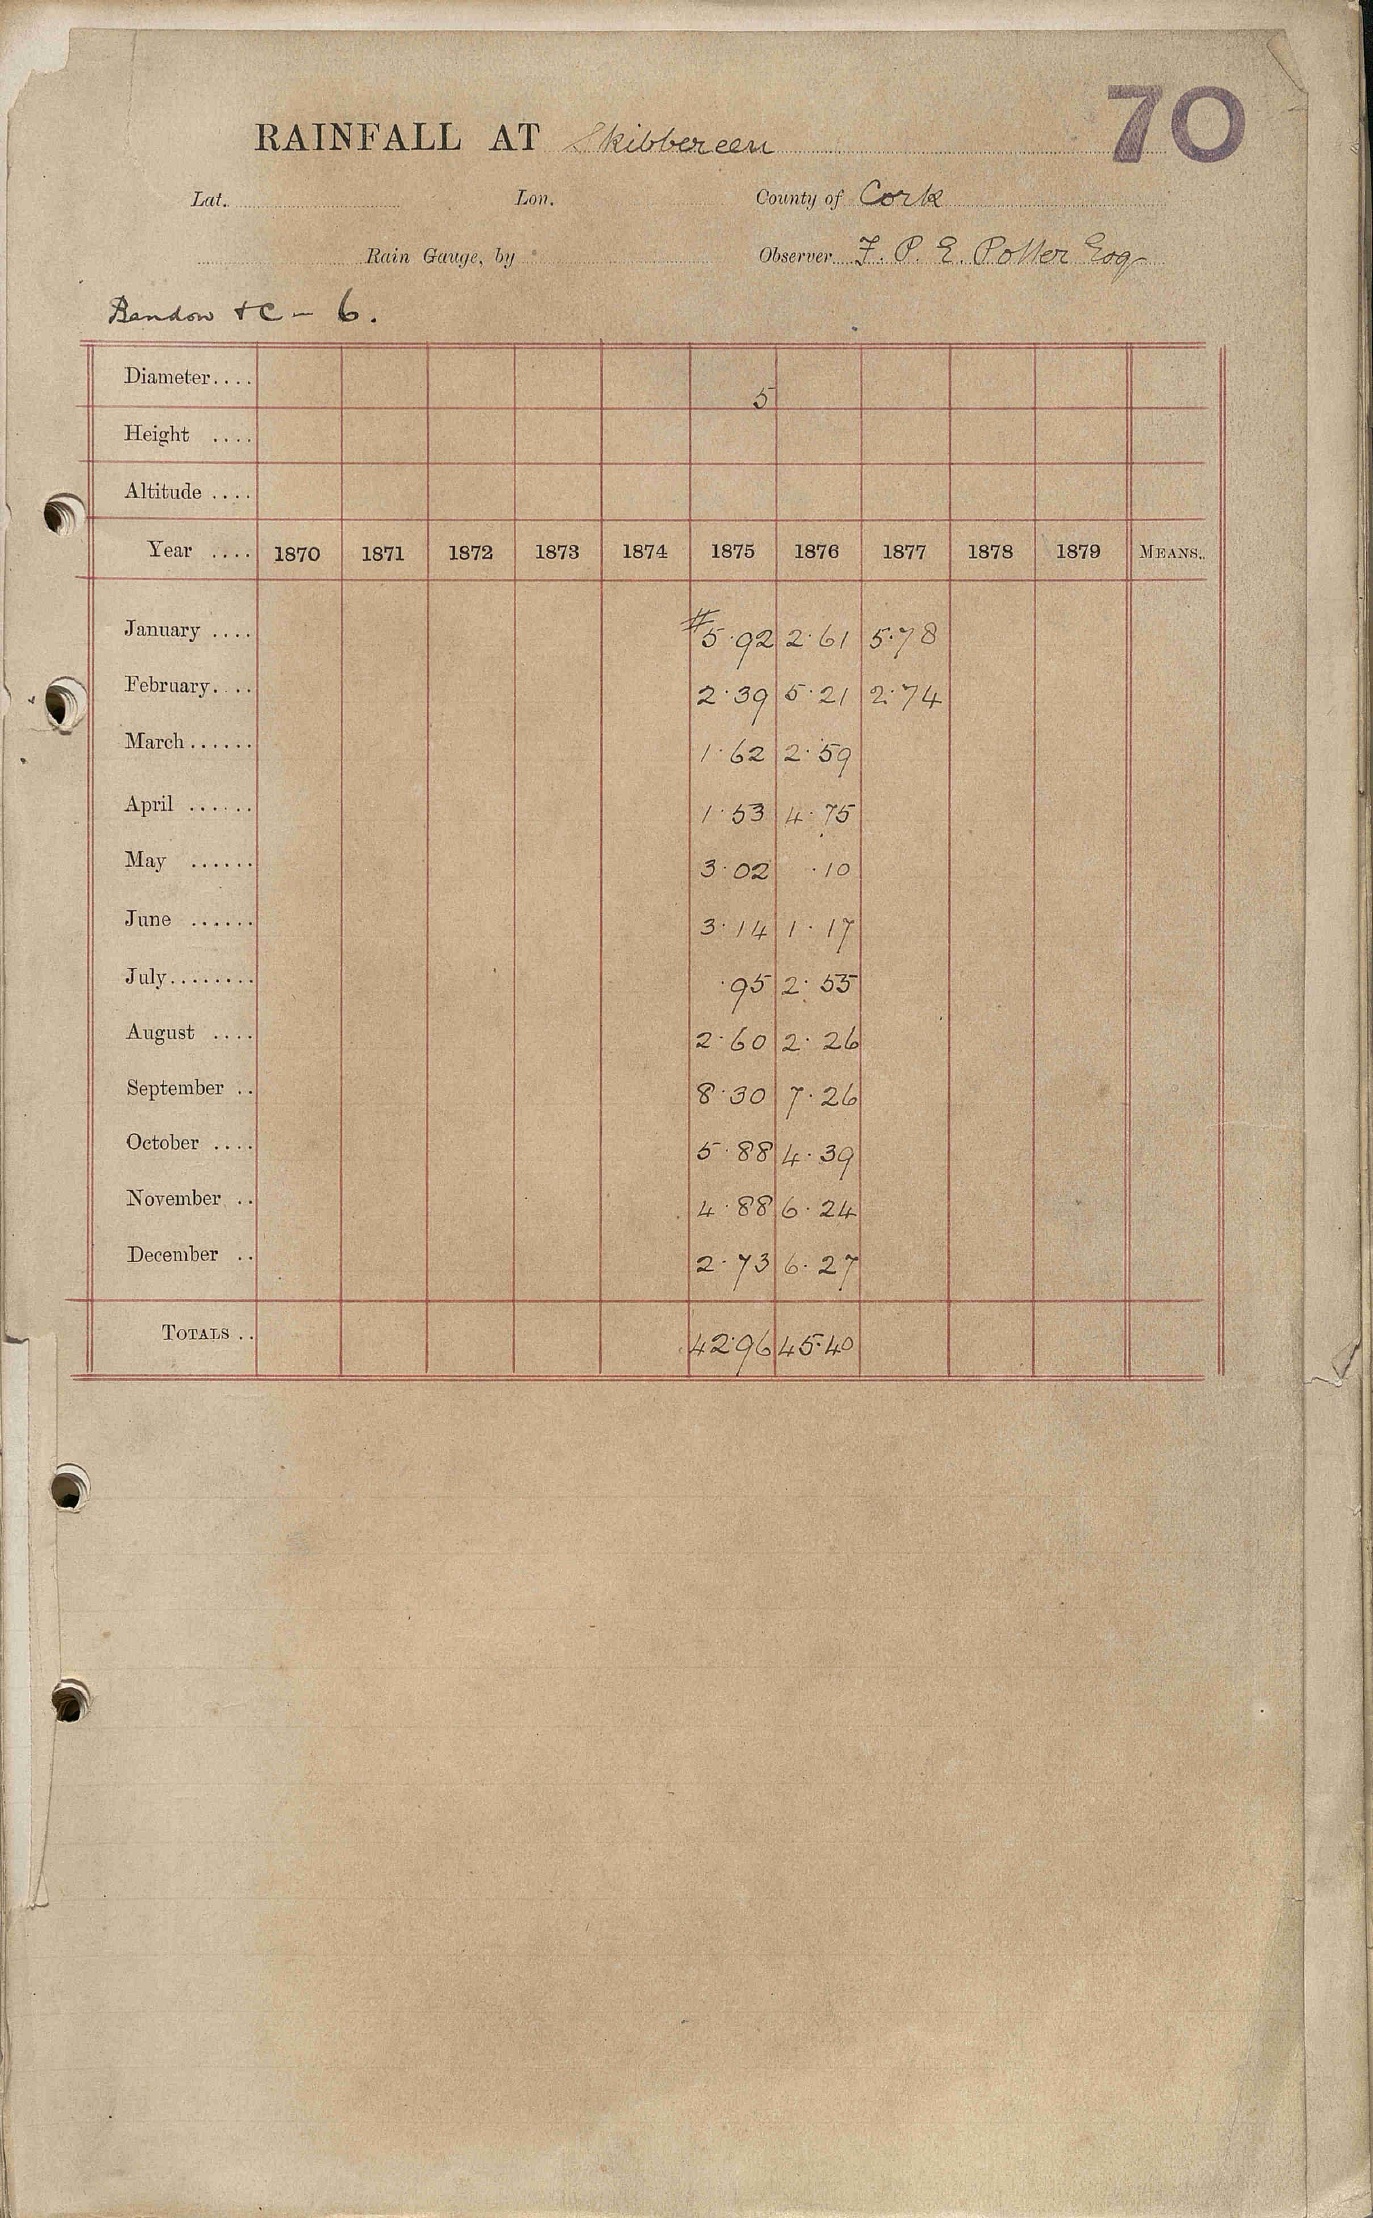 70
RAINFALL AT Skibbereen
Lat. Lon. County of Cork
Rain Gauge, by Observer F. P. E. Potter Esq
Bandon &c - 6.
Diameter.... 5
Height ....
Altitude ....
Year .... 1870 1871 1872 1873 1874 1875 1876 1877 1878 1879 MEANS..
January .... # 5.92 2.61 5.78
February.... 2.39 5.21 2.74
March...... 1.62 2.59
April ...... 1.53 4.75
May ...... 3.02 .10
June ...... 3.14 1.17
July........ .95 2.55
August .... 2.60 2.26
September .. 8.30 7.26
October .... 5.88 4.39
November .. 4.88 6.24
December .. 2.73 6.27
TOTALS .. 42.96 45.40